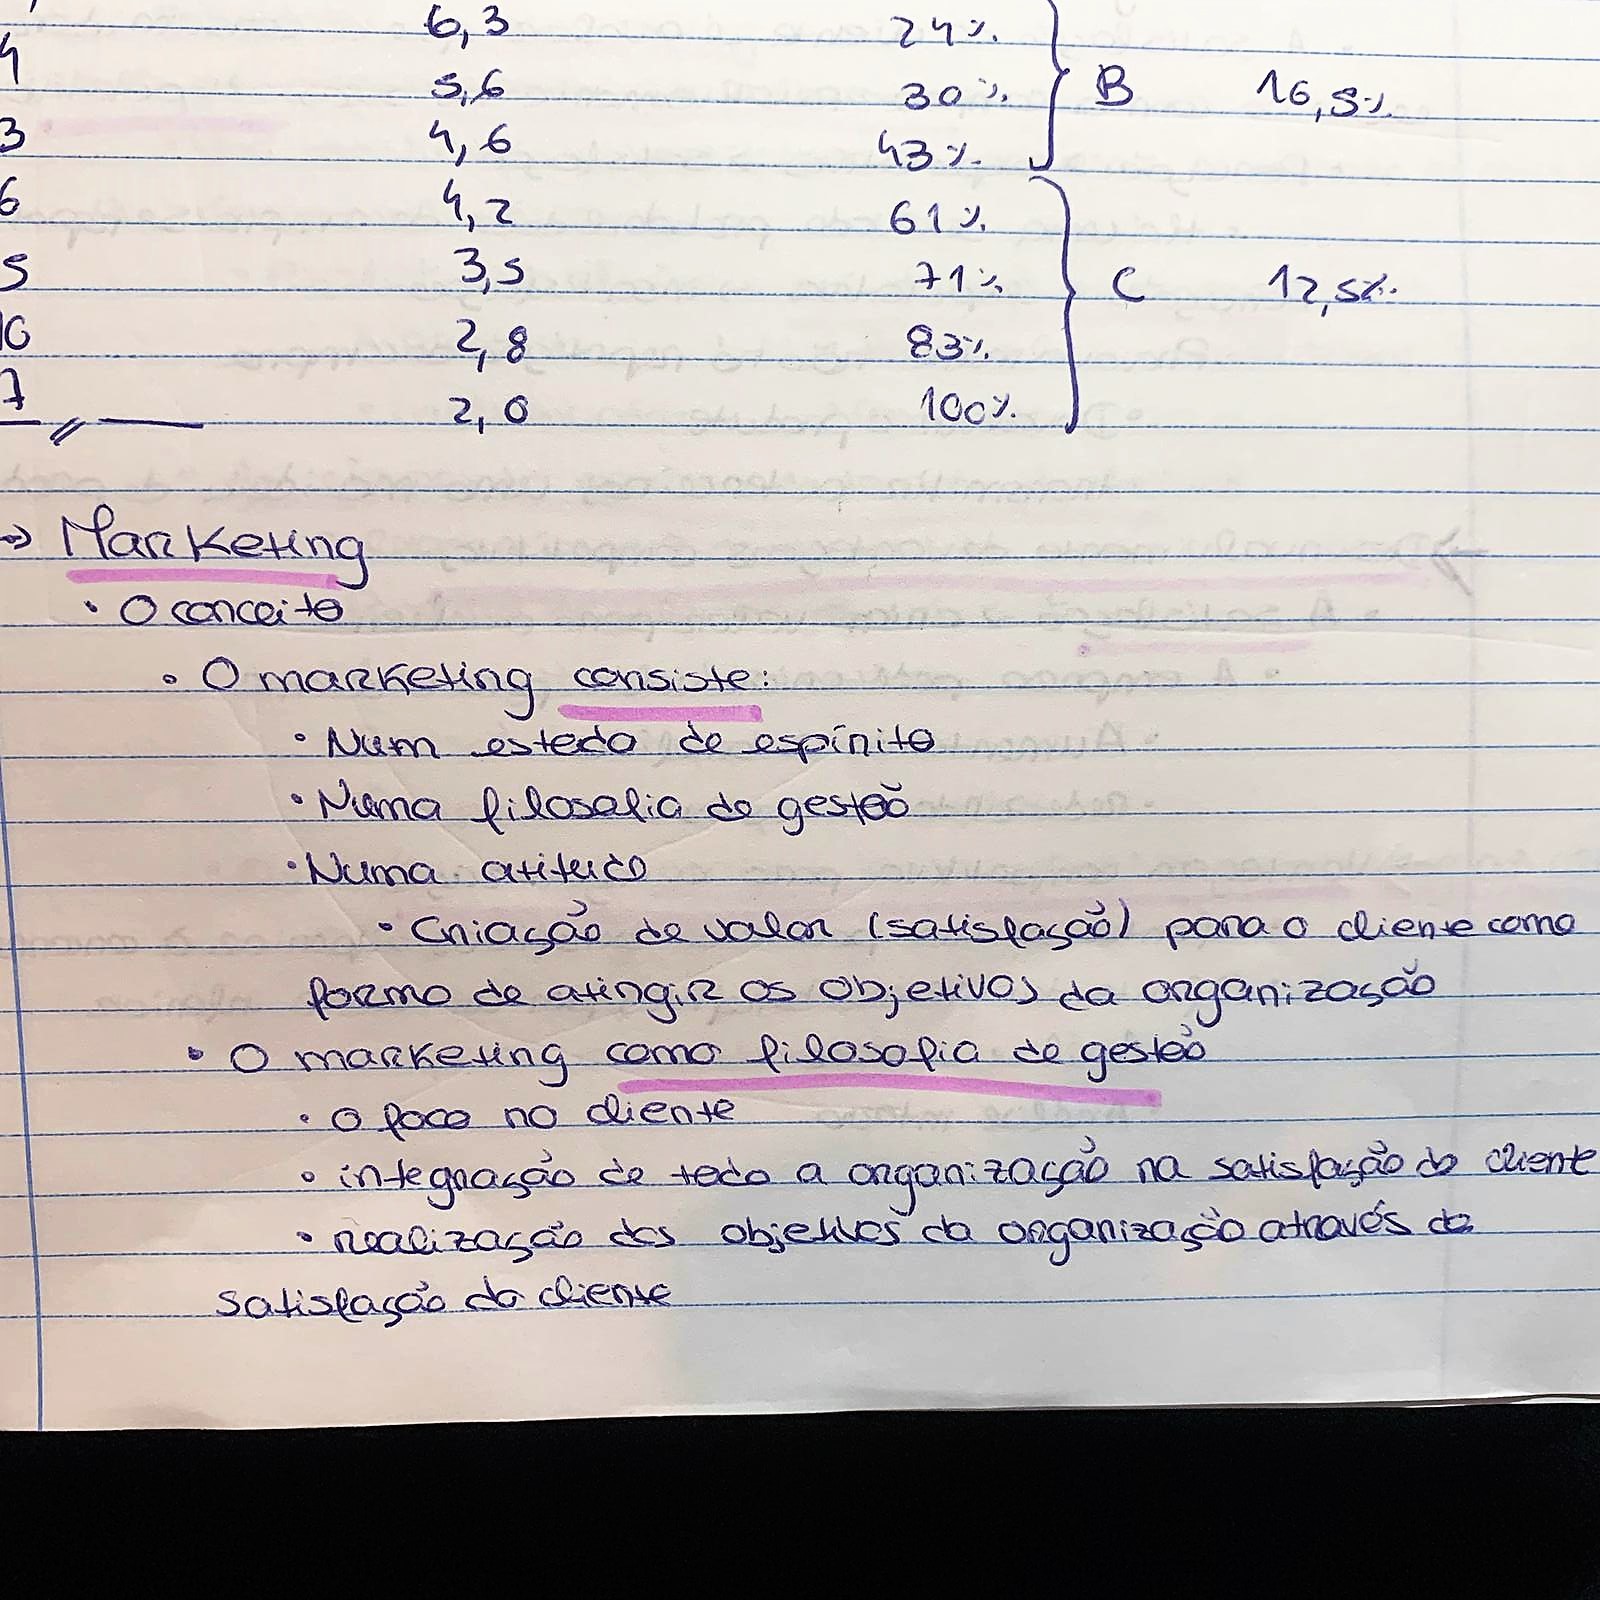 6,3 24%.
4 5,6 30%. B 16,5%.
3 4,6 43%.
6 4,2 61%.
5 3,5 71%. C 12,5%.
10 2,8 83%.
7 2,0 100%.
=> Marketing
• O conceito
• O marketing consiste:
• Num estado de espírito
• Numa filosofia de gestão
• Numa atitude
• Criação de valor (satisfação) para o cliente como
forma de atingir os objetivos da organização
• O marketing como filosofia de gestão
• O foco no cliente
• integração de toda a organização na satisfação do cliente
• realização dos objetivos da organização através da
satisfação do cliente